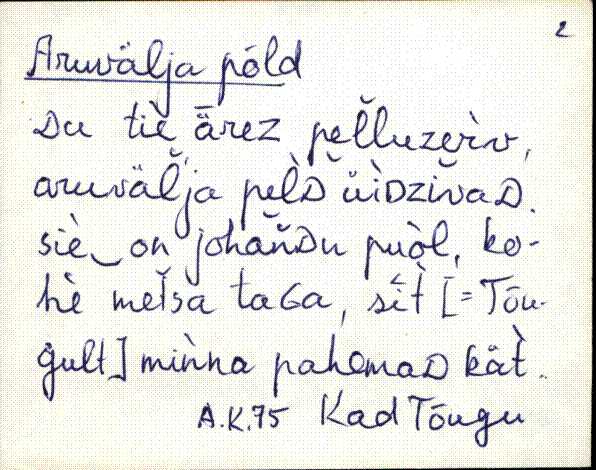 2
Aruvälja põld
Du tiè ǟrez pel̆luzerìv,
aruväl̆ja pelD̀ ŭìDzĭvaD.
siè‿on johan̆Du puòl, ko-
hè met̆sa taGa, sít̀ [= Tõu-
gult] mìnna pahemaD kät̀.
A.K.75 Kad Tõugu